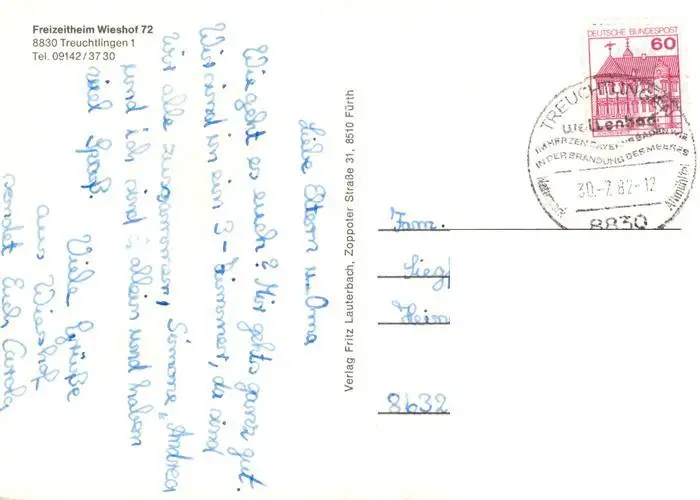 Freizeitheim Wieshof 72
8830 Treuchtlingen 1
Tel. 09142/37 30
Liebe Eltern u. Oma
Wie geht es euch? Mir geht's ganz gut.
Wir sind in ein 3-Zimmer, da sind
wir alle zusammen, Simone, Andrea
und ich sind allein und haben
viel Spaß.
Viele Grüße
aus Wieshof
sendet Euch Carola
Verlag Fritz Lauterbach, Zoppoter Straße 31, 8510 Fürth
DEUTSCHE BUNDESPOST
60
TREUCHTLINGEN
Wellenbad
IM HERZEN BAYERNS BADEN WIE
IN DER BRANDUNG DES MEERES
30.-7.82-12
Naturpark Altmühltal
8830
Fam.
Sieg
Heim
8632